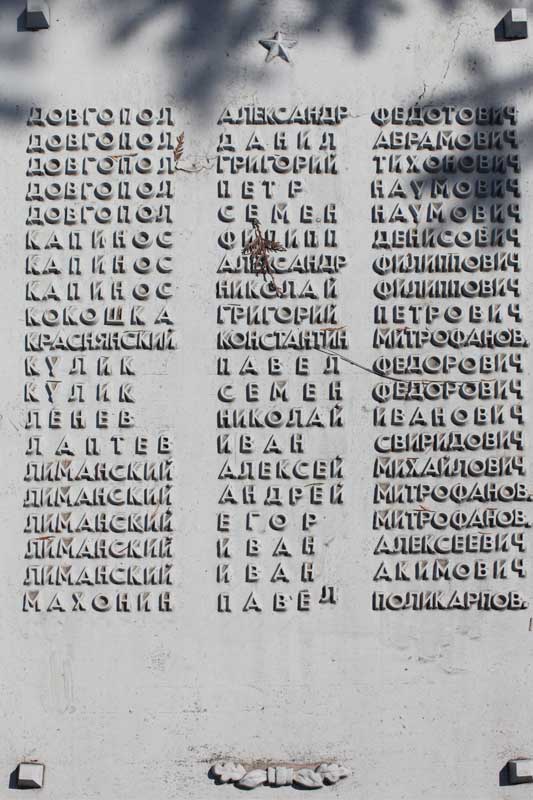 ДОВГОПОЛ АЛЕКСАНДР ФЕДОТОВИЧ
ДОВГОПОЛ ДАНИЛ АБРАМОВИЧ
ДОВГОПОЛ ГРИГОРИЙ ТИХОНОВИЧ
ДОВГОПОЛ ПЕТР НАУМОВИЧ
ДОВГОПОЛ СЕМЕН НАУМОВИЧ
КАПИНОС ФИЛИПП ДЕНИСОВИЧ
КАПИНОС АЛЕКСАНДР ФИЛИППОВИЧ
КАПИНОС НИКОЛАЙ ФИЛИППОВИЧ
КОКОШКА ГРИГОРИЙ ПЕТРОВИЧ
КРАСНЯНСКИЙ КОНСТАНТИН МИТРОФАНОВ.
КУЛИК ПАВЕЛ ФЕДОРОВИЧ
КУЛИК СЕМЕН ФЕДОРОВИЧ
ЛЕНЕВ НИКОЛАЙ ИВАНОВИЧ
ЛАПТЕВ ИВАН СВИРИДОВИЧ
ЛИМАНСКИЙ АЛЕКСЕЙ МИХАЙЛОВИЧ
ЛИМАНСКИЙ АНДРЕЙ МИТРОФАНОВ.
ЛИМАНСКИЙ ЕГОР МИТРОФАНОВ.
ЛИМАНСКИЙ ИВАН АЛЕКСЕЕВИЧ
ЛИМАНСКИЙ ИВАН АКИМОВИЧ
МАХОНИН ПАВЕЛ ПОЛИКАРПОВ.